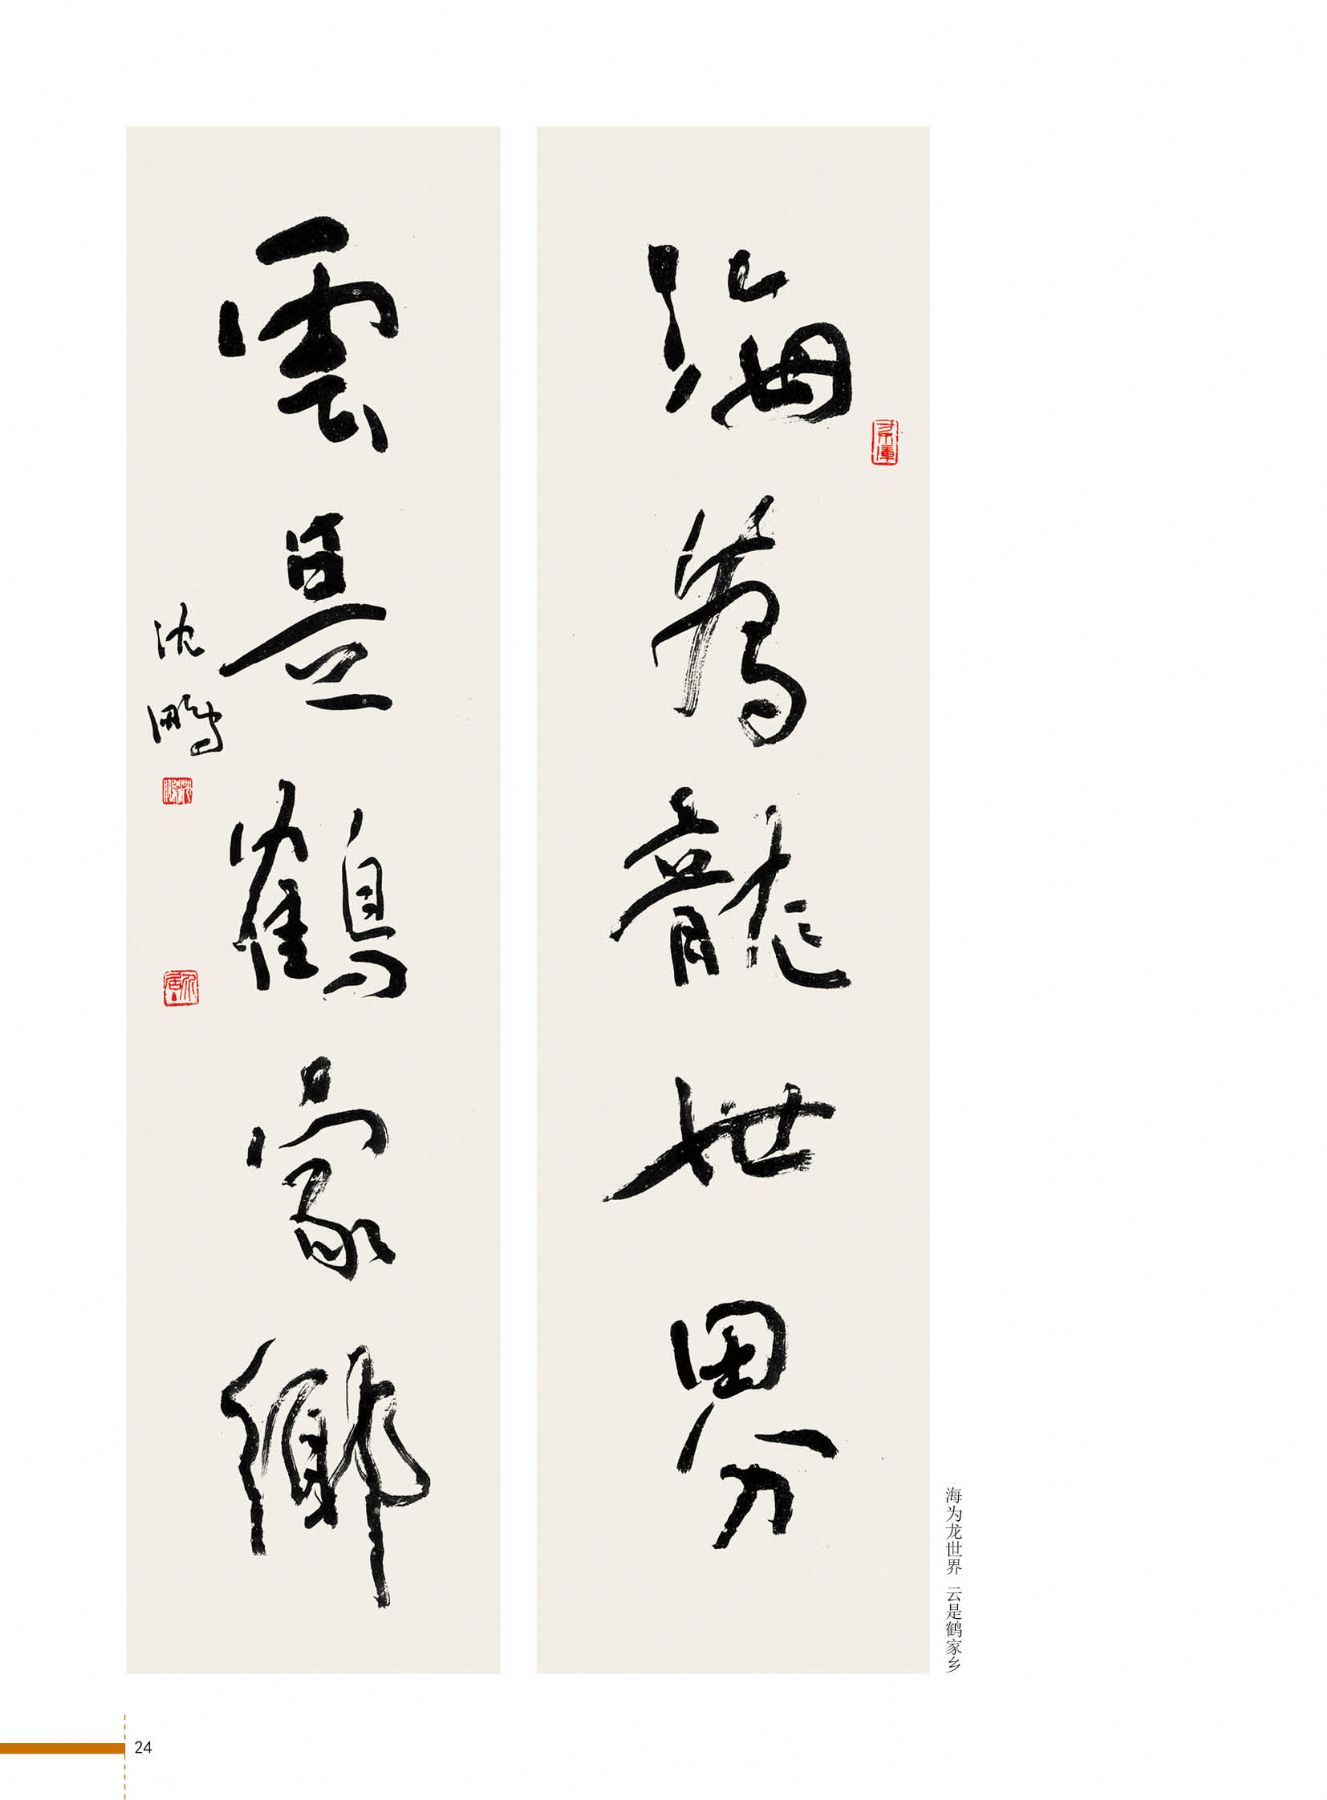 海為龍世界
雲是鶴家鄉
沈鵬
海为龙世界 云是鹤家乡
24